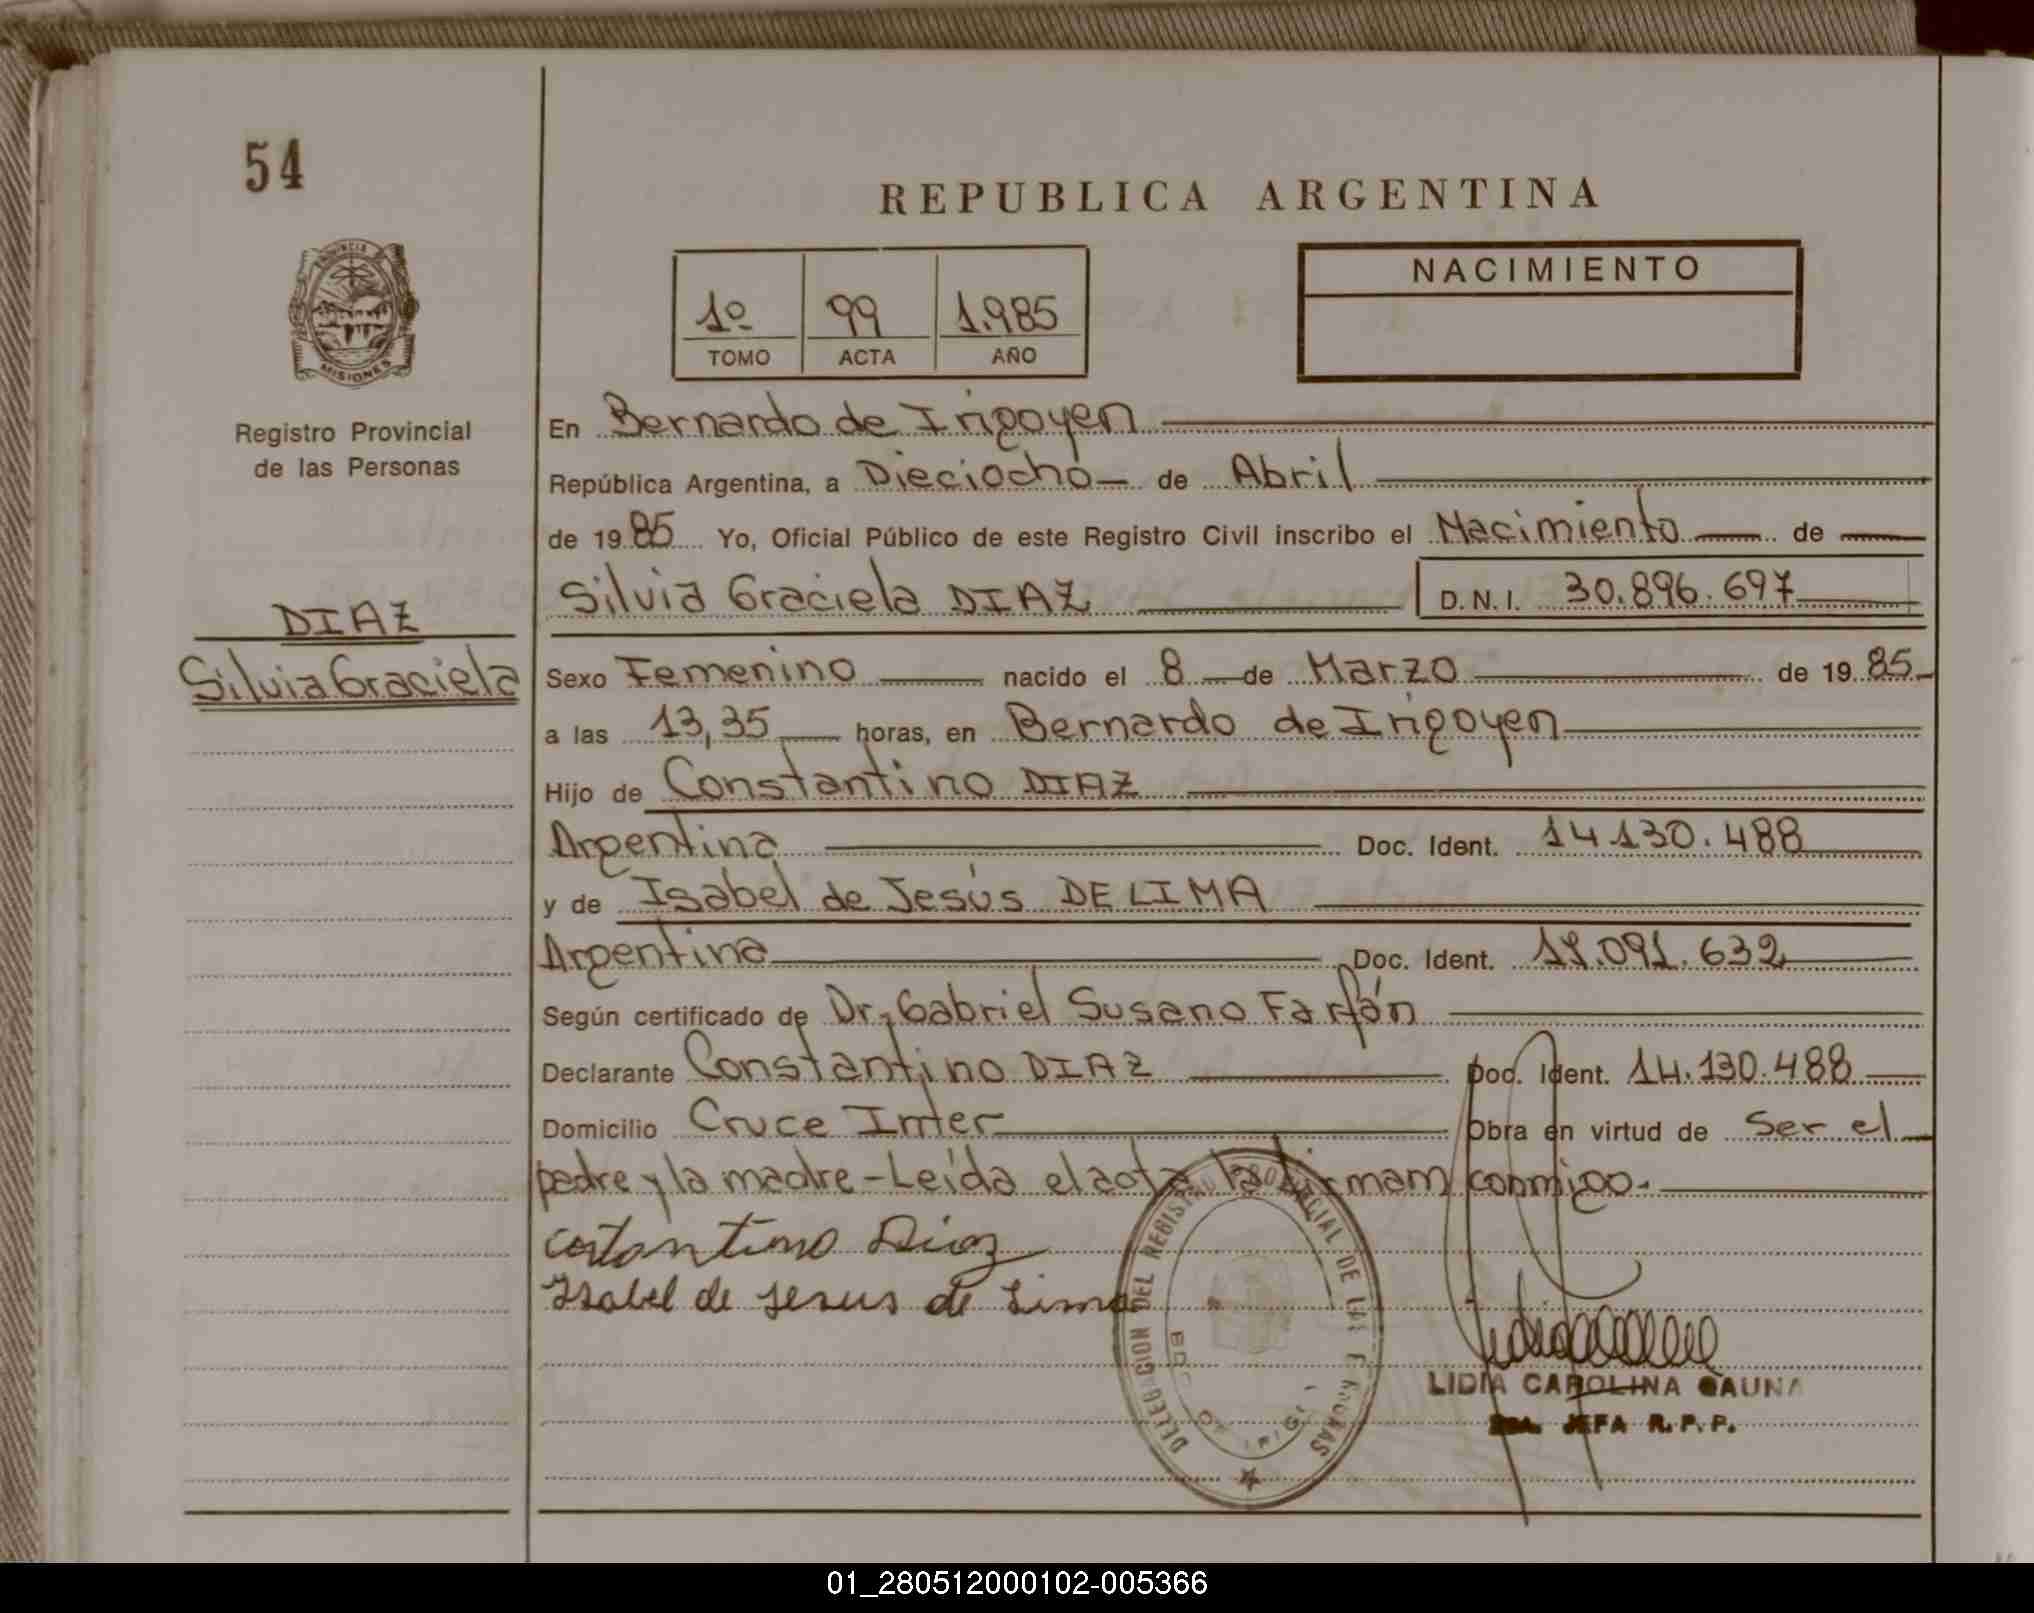 54
REPUBLICA ARGENTINA
PROVINCIA
MISIONES
Registro Provincial
de las Personas
1º 99 1.985
TOMO ACTA AÑO
NACIMIENTO
DIAZ
Silvia Graciela
En Bernardo de Irigoyen
República Argentina, a Dieciocho de Abril
de 1985 Yo, Oficial Público de este Registro Civil inscribo el Nacimiento de
Silvia Graciela DIAZ D.N.I. 30.896.697
Sexo Femenino nacido el 8 de Marzo de 1985
a las 13,35 horas, en Bernardo de Irigoyen
Hijo de Constantino DIAZ
Argentina Doc. Ident. 14.130.488
y de Isabel de Jesús DE LIMA
Argentina Doc. Ident.
Según certificado de Dr. Gabriel Susano Farfán
Declarante Constantino DIAZ Doc. Ident. 14.130.488
Domicilio Cruce Inter Obra en virtud de Ser el
padre y la madre - Leída el acta la firman conmigo.
Isabel de Jesus de Lima
DELEGACION DEL REGISTRO PROVINCIAL DE LAS PERSONAS
LIDIA CAROLINA GAUNA
JEFA R.P.P.
01_280512000102-005366